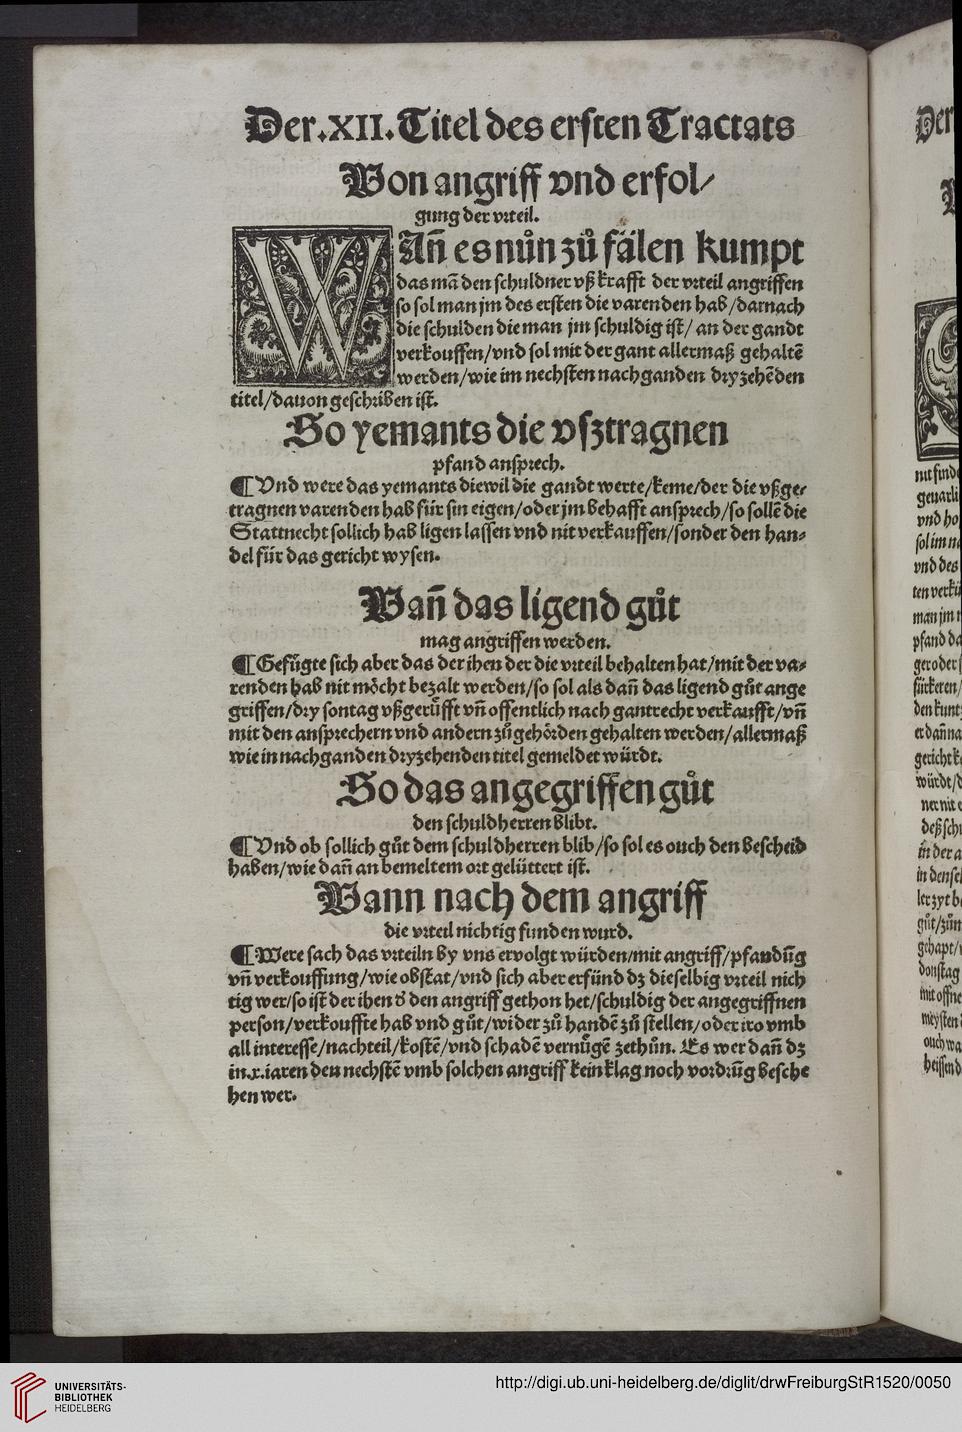 Der.XII.Titel des ersten Tractats
Von angriff vnd erfol/
gung der vrteil.
WAn̄ es nůn zů fälen kumpt
das mā den schuldner vß krafft der vrteil angriffen
so sol man jm des ersten die varenden hab/darnach
die schulden die man jm schuldig ist/ an der gandt
verkouffen/vnd sol mit der gant allermaß gehaltē
werden/wie im nechsten nachganden dryzehēden
titel/dauon geschriben ist.
So yemants die vsztragnen
pfand ansprech.
¶ Vnd were das yemants diewil die gandt werte/keme/der die vßge-
tragnen varenden hab für sin eigen/oder jm behafft ansprech/so sollē die
Stattnecht sollich hab ligen lassen vnd nit verkauffen/sonder den han-
del für das gericht wysen.
Wan̄ das ligend gůt
mag angriffen werden.
¶ Gefůgte sich aber das der ihen der die vrteil behalten hat/mit der va-
renden hab nit möcht bezalt werden/so sol als dan̄ das ligend gůt ange
griffen/dry sontag vßgerůfft vn̄ offentlich nach gantrecht verkaufft/vn̄
mit den ansprechern vnd andern zůgehörden gehalten werden/allermaß
wie in nachganden dryzehenden titel gemeldet würdt.
So das angegriffen gůt
den schuldherren blibt.
¶ Vnd ob sollich gůt dem schuldherren blib/so sol es ouch den bescheid
haben/wie dan̄ an bemeltem ort gelüttert ist.
Wann nach dem angriff
die vrteil nichtig funden wurd.
¶ Were sach das vrteiln by vns ervolgt würden/mit angriff/pfandūg
vn̄ verkouffung/wie obstat/vnd sich aber erfünd dz dieselbig vrteil nich
tig wer/so ist der ihen d' den angriff gethon het/schuldig der angegriffnen
person/verkouffte hab vnd gůt/wider zů handē zů stellen/oder iro vmb
all interesse/nachteil/kostē/vnd schadē vernůgē zethůn. Es wer dan̄ dz
in.x.iaren den nechstē vmb solchen angriff kein klag noch vordrūg besche
hen wer.
UNIVERSITÄTS-
BIBLIOTHEK
HEIDELBERG
http://digi.ub.uni-heidelberg.de/diglit/drwFreiburgStR1520/0050